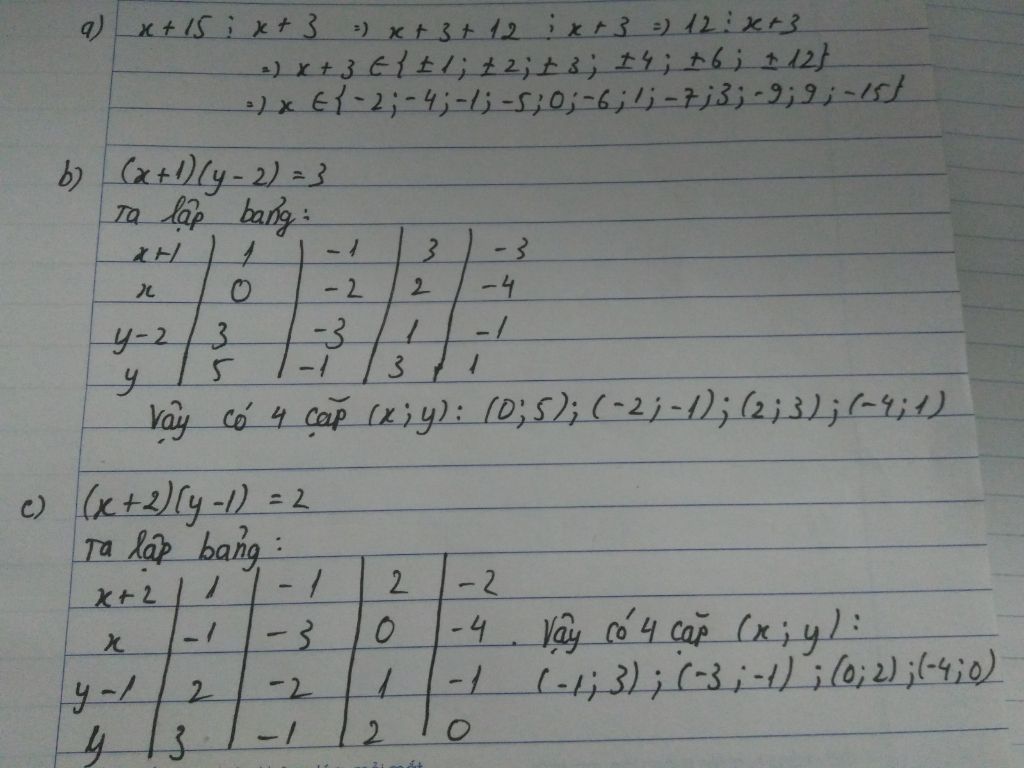 a) x+15 ⋮ x+3 => x+3+12 ⋮ x+3 => 12 ⋮ x+3
=> x+3 ∈ {±1; ±2; ±3; ±4; ±6; ±12}
=> x ∈ {-2; -4; -1; -5; 0; -6; 1; -7; 3; -9; 9; -15}
b) (x+1)(y-2) = 3
Ta lập bảng:
x+1 | 1 | -1 | 3 | -3
x | 0 | -2 | 2 | -4
y-2 | 3 | -3 | 1 | -1
y | 5 | -1 | 3 | 1
Vậy có 4 cặp (x; y): (0; 5); (-2; -1); (2; 3); (-4; 1)
c) (x+2)(y-1) = 2
Ta lập bảng:
x+2 | 1 | -1 | 2 | -2
x | -1 | -3 | 0 | -4 . Vậy có 4 cặp (x; y):
y-1 | 2 | -2 | 1 | -1 (-1; 3); (-3; -1); (0; 2); (-4; 0)
y | 3 | -1 | 2 | 0